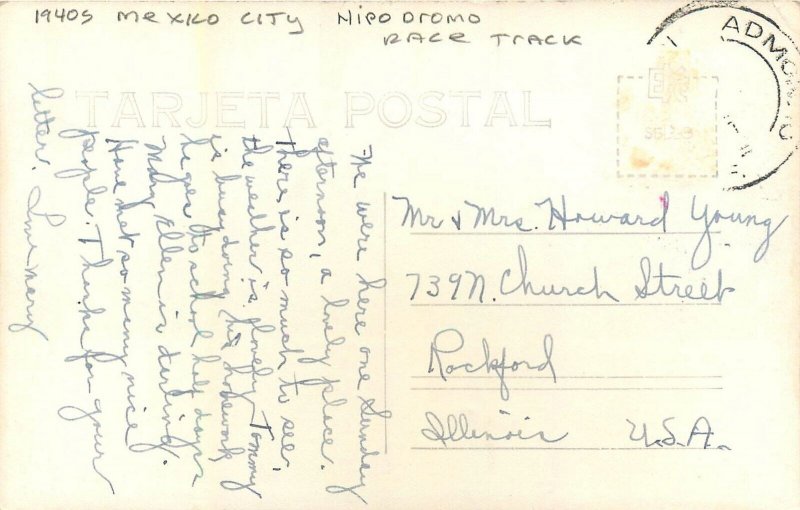 1940s MEXICO CITY HIPODROMO
RACE TRACK
TARJETA POSTAL
ADMON
We were here one Sunday
afternoon, a lovely place.
There is so much to see,
the weather is lovely. Tommy
is busy doing his homework
he goes to school half days
Mary Ellen is darling.
Have met so many nice
people. Thanks for your
letter. Love Mary
Mr & Mrs. Howard Young
739 N. Church Street
Rockford
Illinois U.S.A.